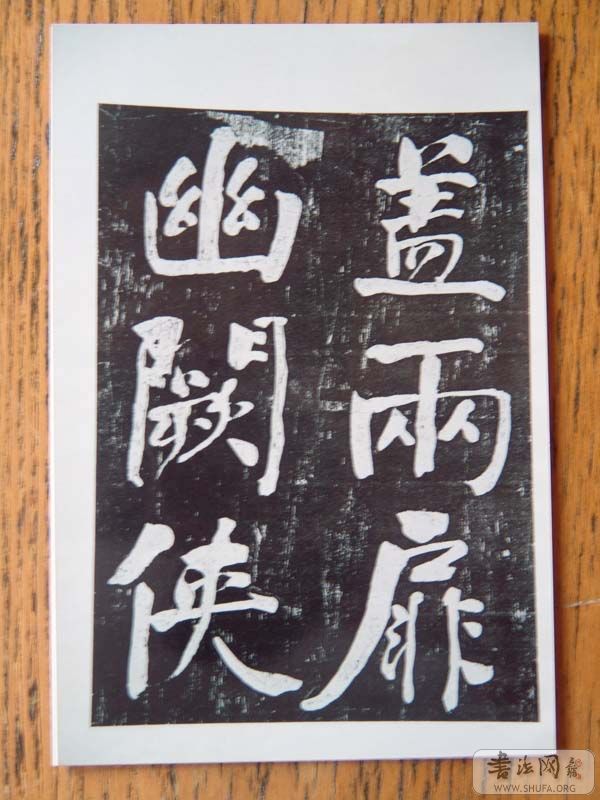 盖兩扉
幽闕俠
書法网
WWW.SHUFA.ORG